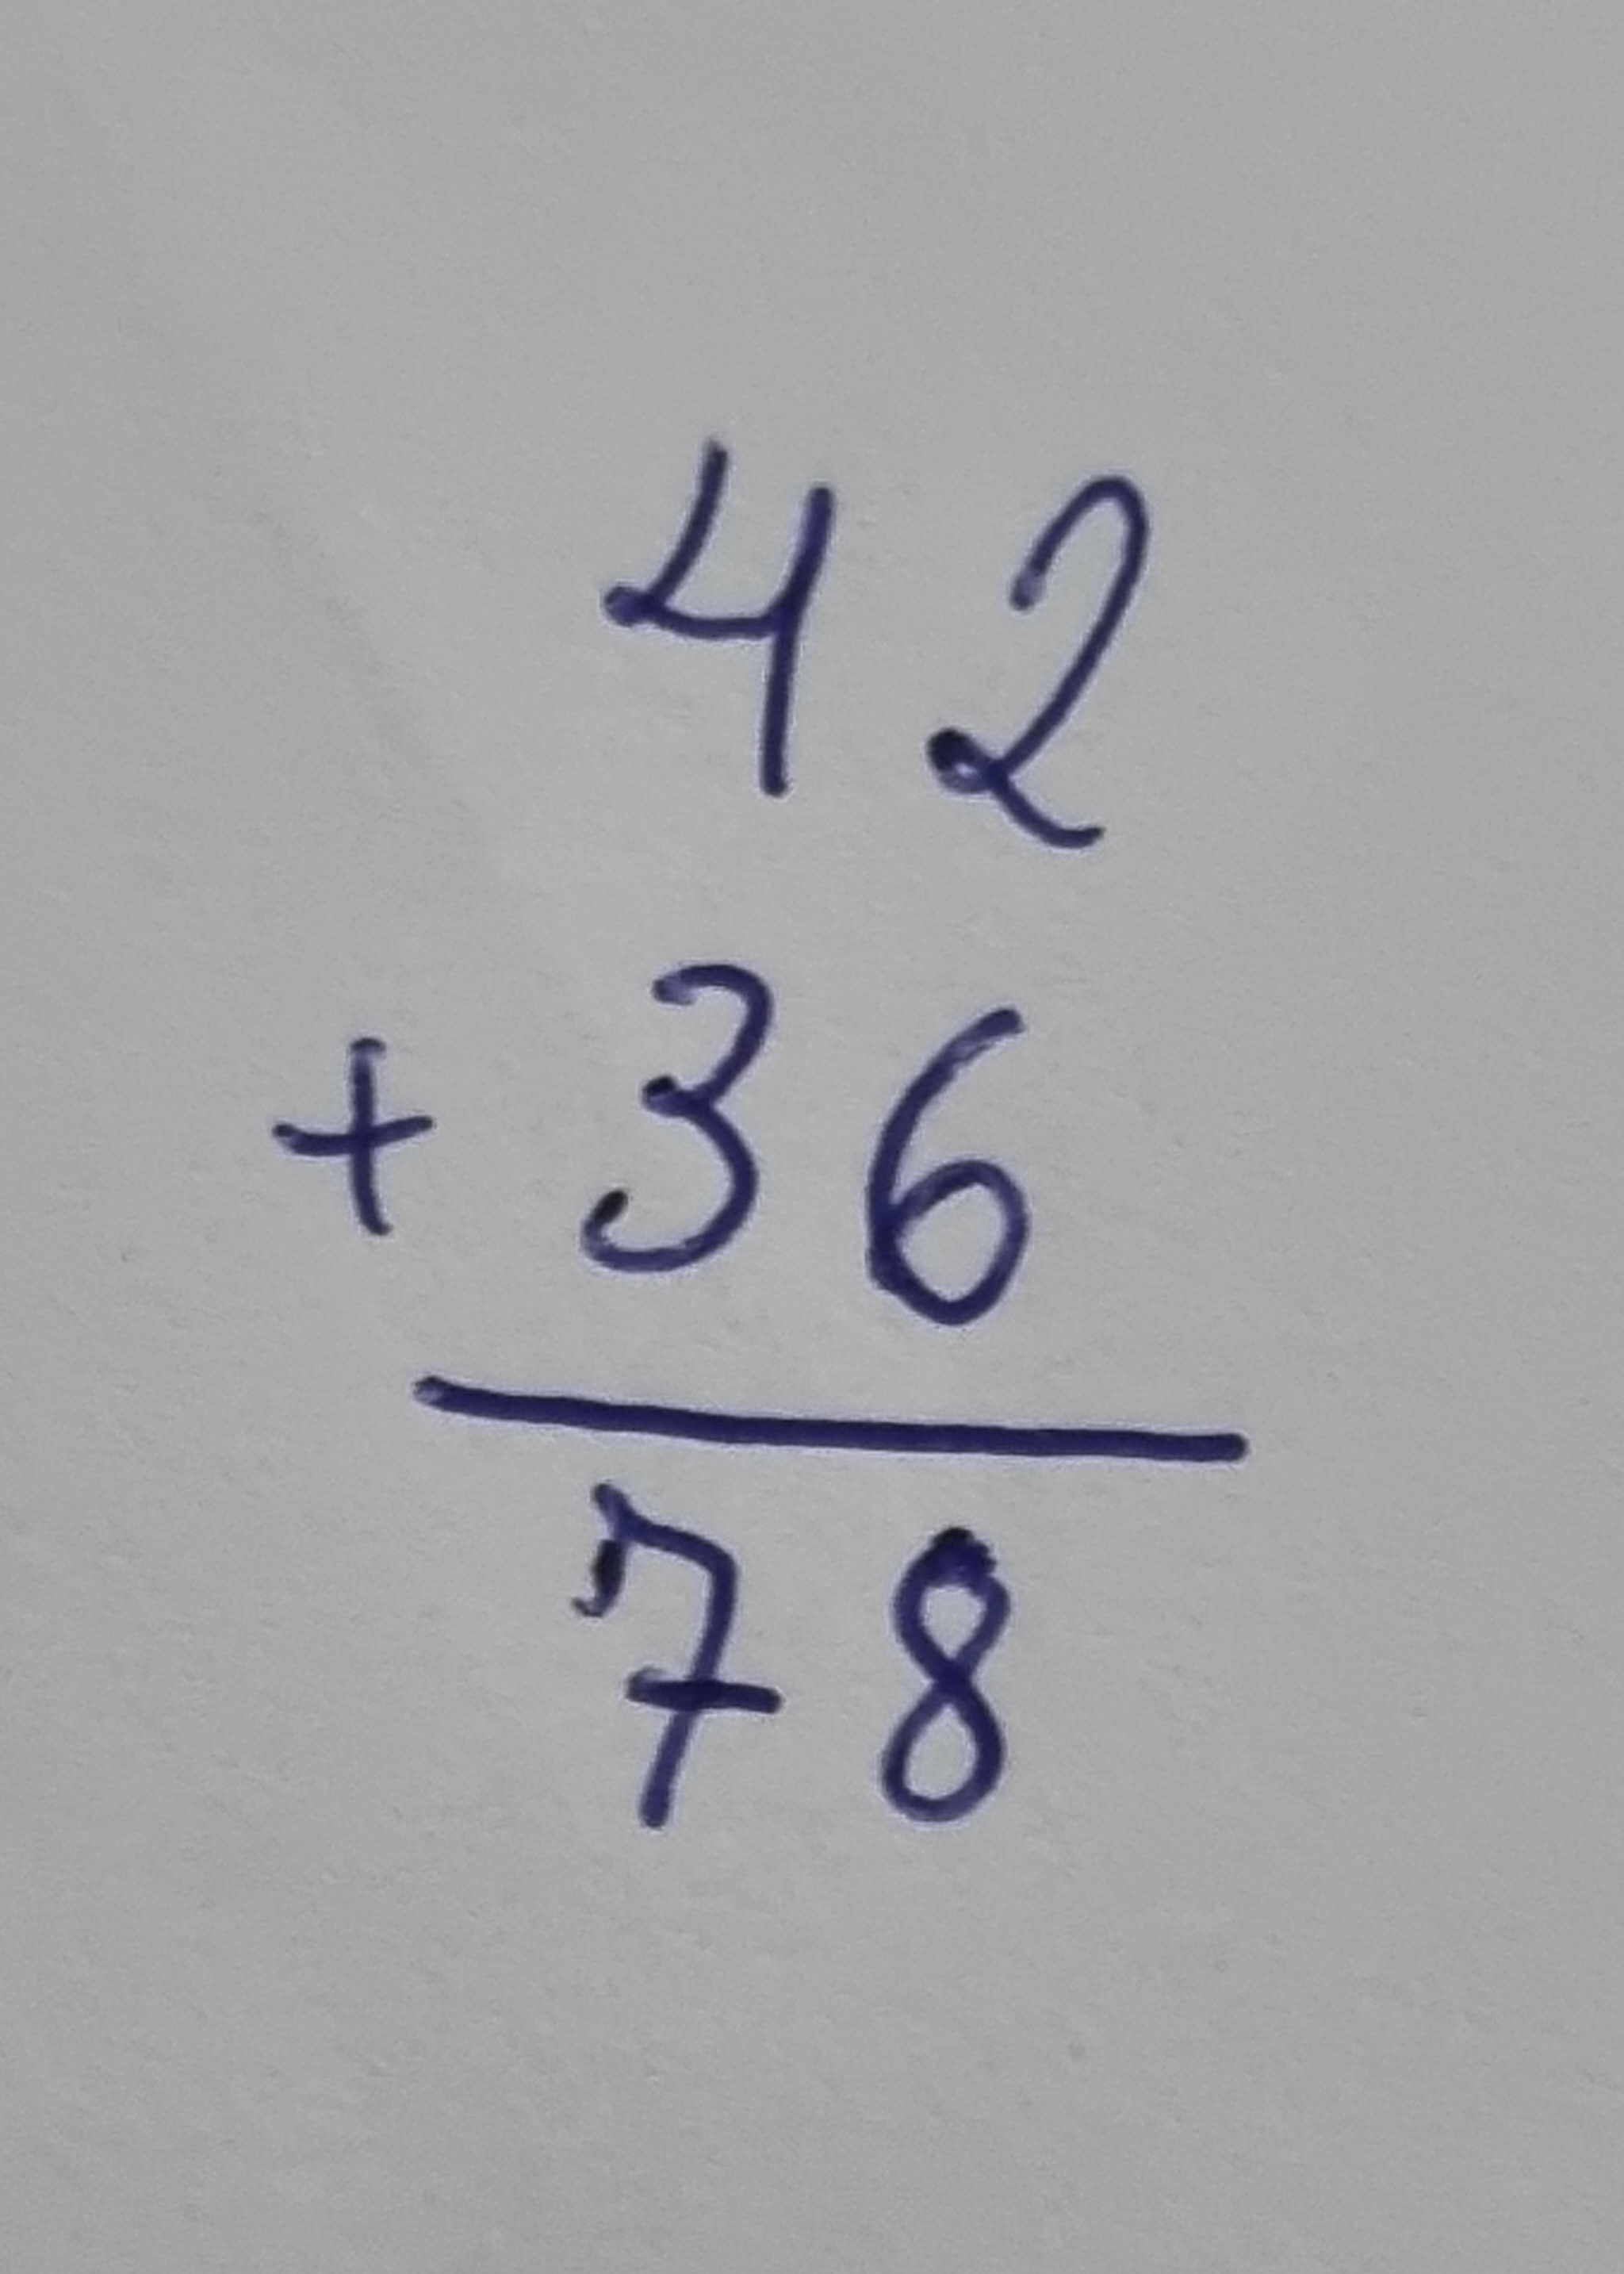 42
+ 36
78